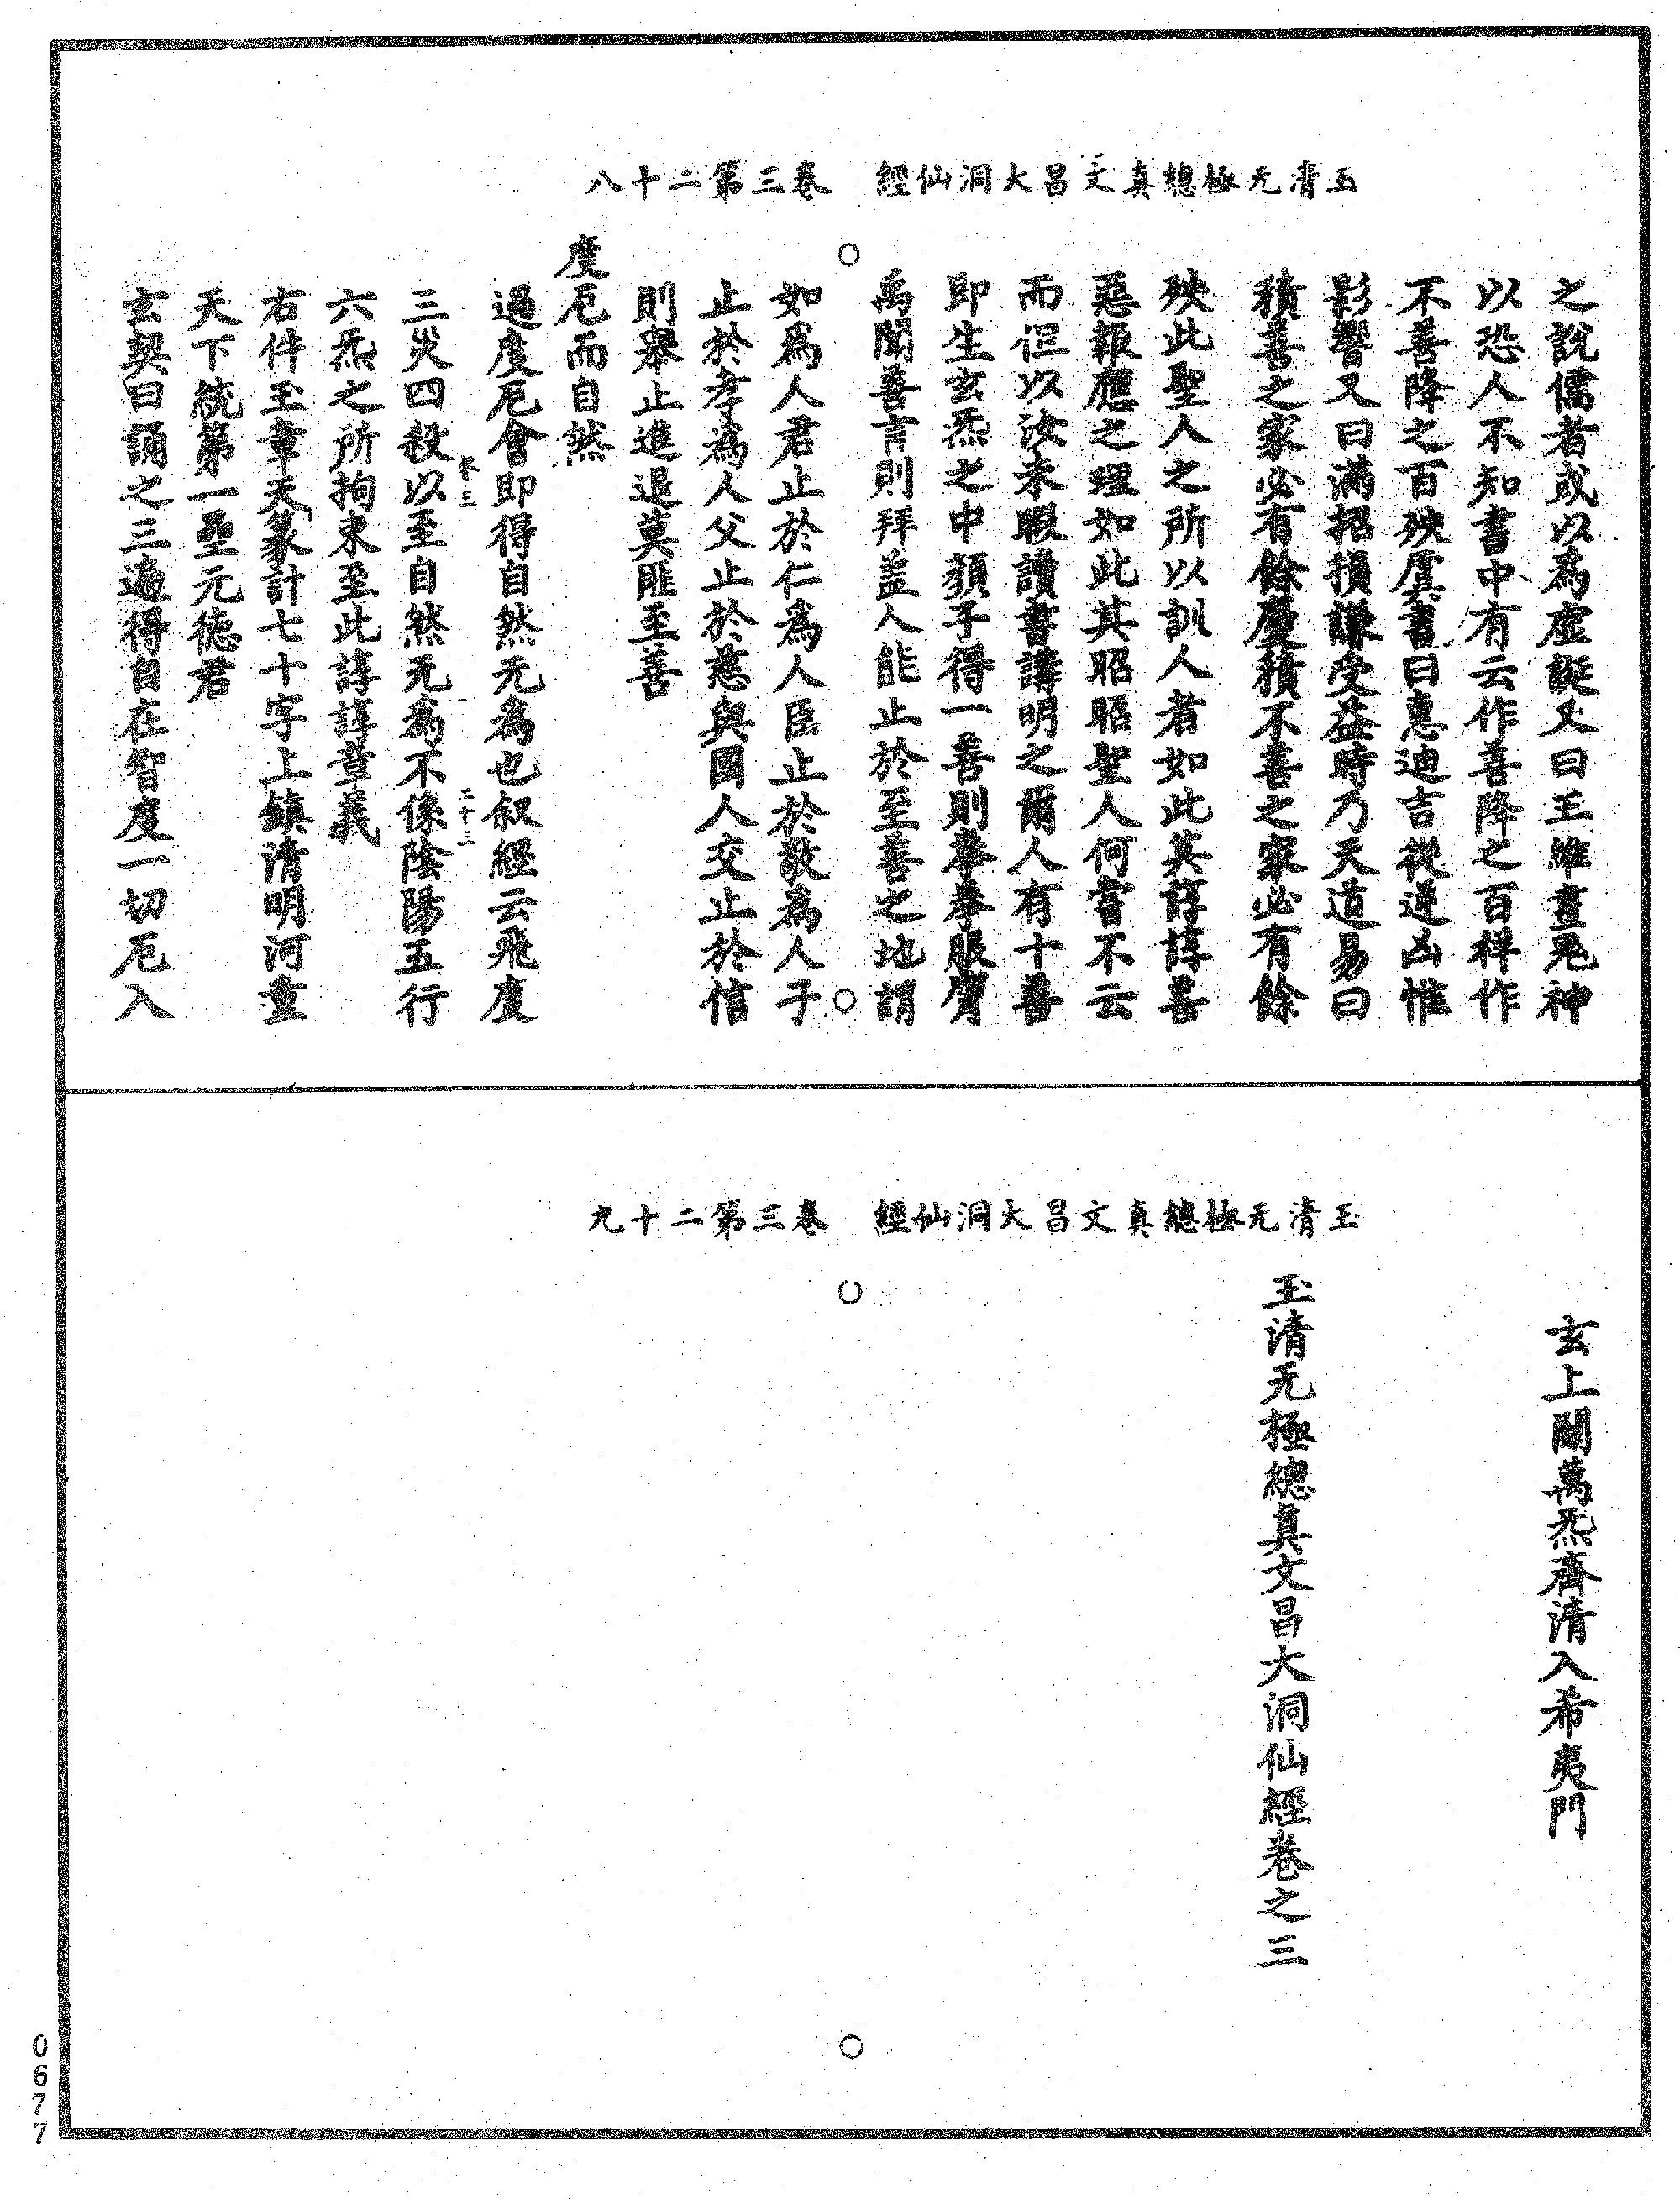 玉清无極總真文昌大洞仙經　卷三第二十八
之說儒者或以為虛誕又曰王維畫鬼神
以恐人不知書中有云作善降之百祥作
不善降之百殃虞書曰惠迪吉從逆凶惟
影響又曰滿招損謙受益時乃天道易曰
積善之家必有餘慶積不善之家必有餘
殃此聖人之所以訓人者如此其諄諄善
惡報應之理如此其昭昭聖人何嘗不云
而但以汝未暇讀書講明之爾人有十善
即生玄炁之中顏子得一善則拳拳服膺
禹聞善言則拜盖人能止於至善之地謂
如為人君止於仁為人臣止於敬為人子
止於孝為人父止於慈與國人交止於信
則舉止進退莫匪至善
度厄而自然
過度厄會即得自然无為也叙經云飛度
卷三　二十三
三災四殺以至自然无為不係陰陽五行
六炁之所拘束至此諄諄重義
右件玉章天篆計七十字上鎮清明河童
天下統第一聖元德君
玄契曰誦之三遍得自在智度一切厄入
玉清无極總真文昌大洞仙經　卷三第二十九
玄上關萬炁齊清入希夷門
玉清无極總真文昌大洞仙經卷之三
0677